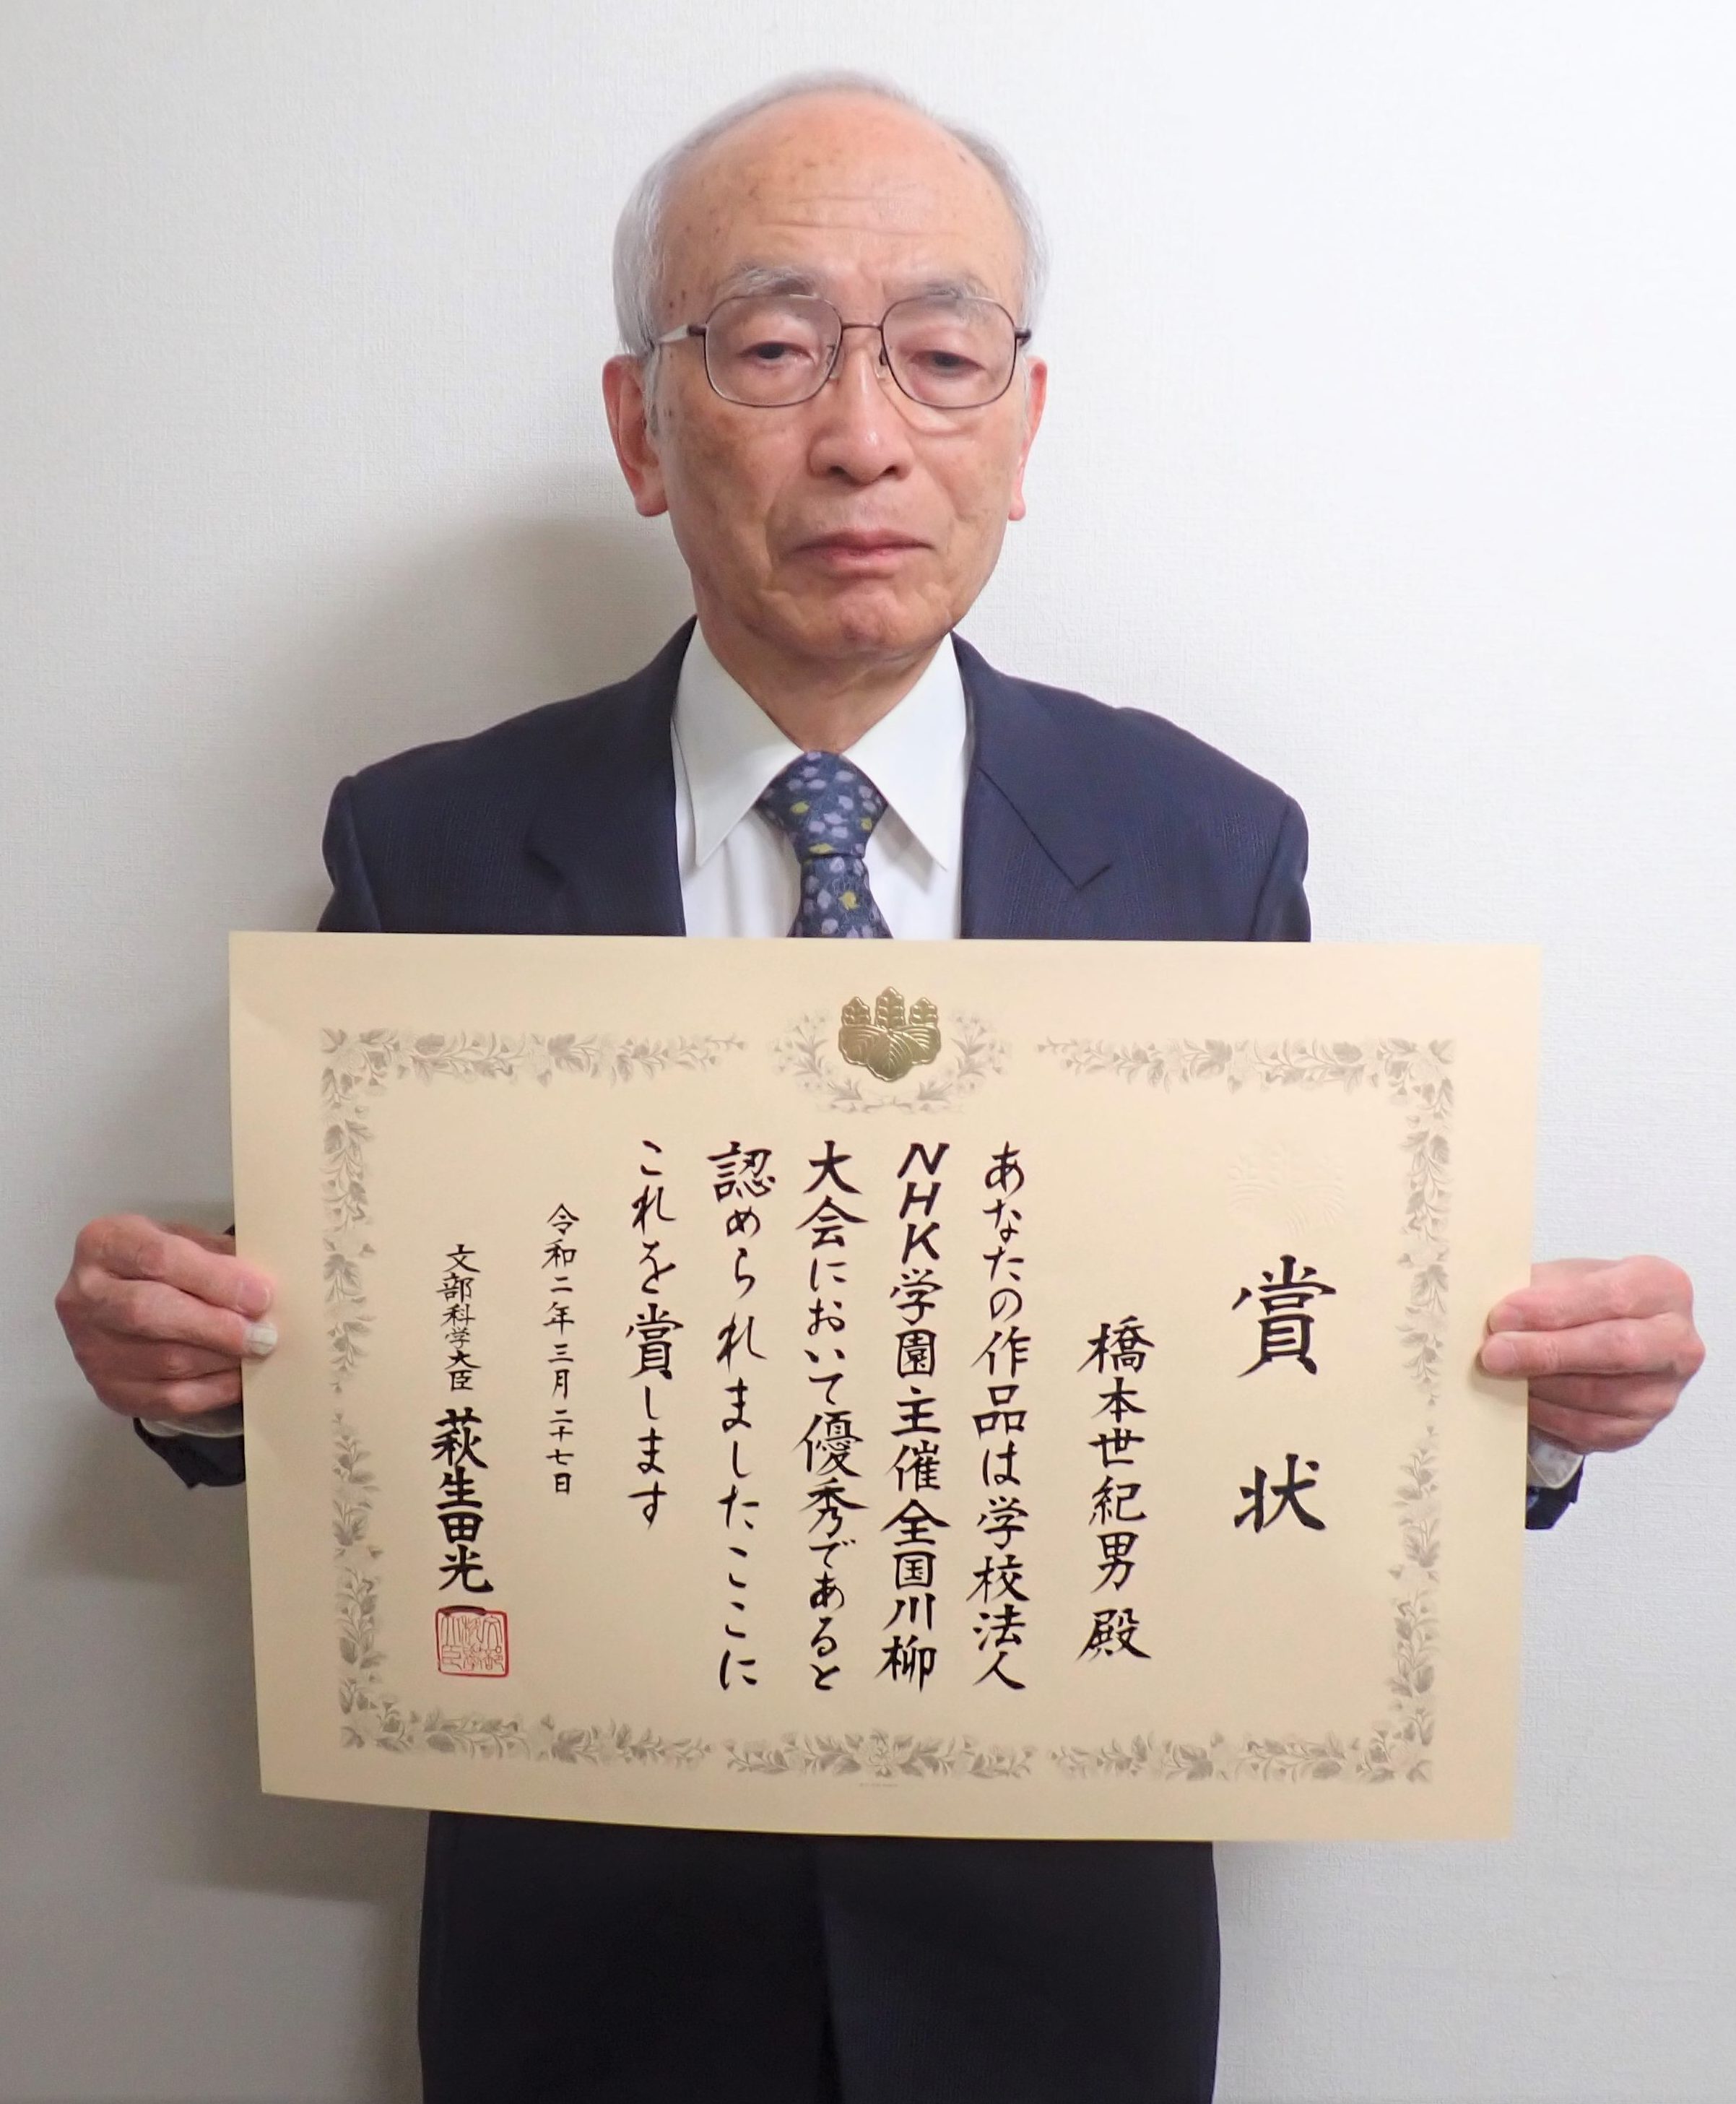 賞状
橋本世紀男殿
あなたの作品は学校法人
NHK学園主催全国川柳
大会において優秀であると
認められましたここに
これを賞します
令和二年三月二十七日
文部科学大臣 萩生田光一